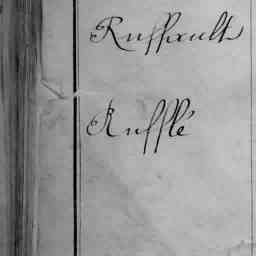 Ruffault
Rufflé